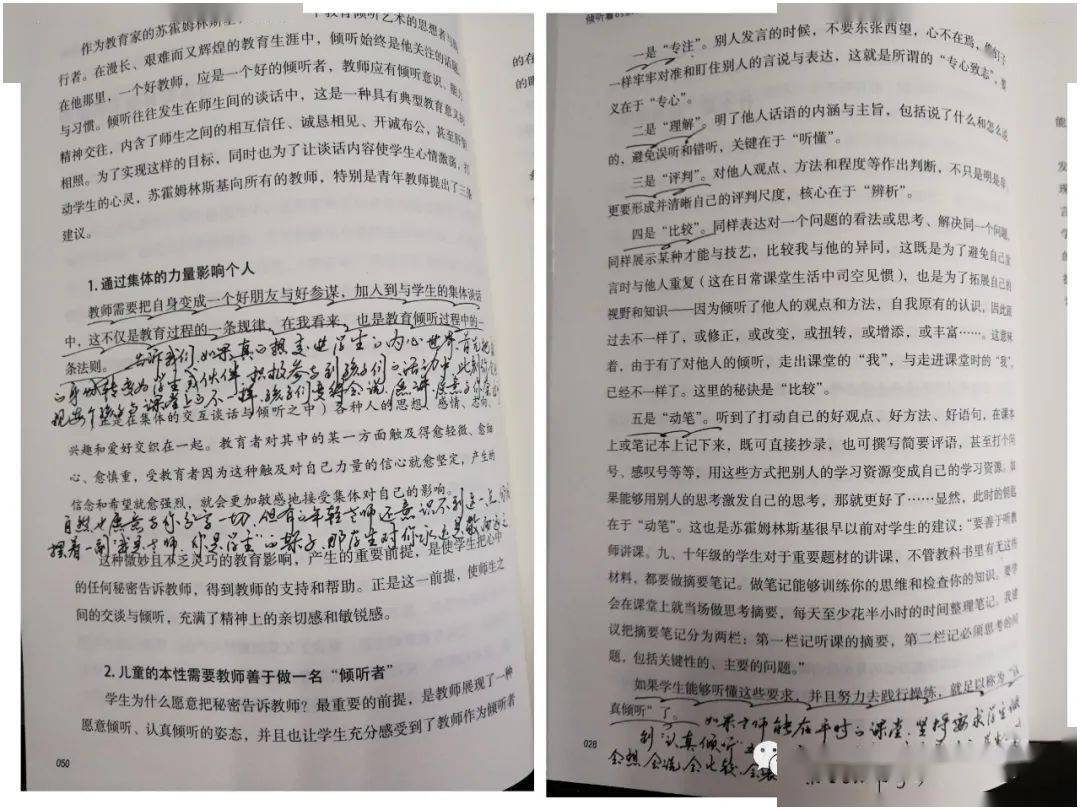 作为教育家的苏霍姆林斯基
教育倾听艺术的思想者与
行者。在漫长、艰难而又辉煌的教育生涯中，倾听始终是他关注的话题。
在他那里，一个好教师，应是一个好的倾听者，教师应有倾听意识、能力
与习惯。倾听往往发生在师生间的谈话中，这是一种具有典型教育意义的
精神交往，内含了师生之间的相互信任、诚恳相见、开诚布公，甚至肝胆
相照。为了实现这样的目标，同时也为了让谈话内容使学生心情激荡，打
动学生的心灵，苏霍姆林斯基向所有的教师，特别是青年教师提出了三条
建议。
1. 通过集体的力量影响个人
教师需要把自身变成一个好朋友与好参谋，加入到与学生的集体谈话
中，这不仅是教育过程的一条规律，在我看来，也是教育倾听过程中的一
条法则。
告诉我们，如果真正想走进学生的内心世界，首先把
身份转变为学生的伙伴，积极参与到孩子们的活动中
是在集体的交互谈话与倾听之中）各种人的思想、感情、志向、
兴趣和爱好交织在一起。教育者对其中的某一方面触及得愈轻微、愈细
心、愈慎重，受教育者因为这种触及对自己力量的信心就愈坚定，产生的
信念和希望就愈强烈，就会更加敏感地接受集体对自己的影响。
自然也愿意与你分享一切，但有的年轻老师还意识不到这一点
摆着一副“我是老师，你是学生”的架子，那学生对你永远是敬而远之
这种微妙且不乏灵巧的教育影响，产生的重要前提，是使学生把心中
的任何秘密告诉教师，得到教师的支持和帮助。正是这一前提，使师生之
间的交谈与倾听，充满了精神上的亲切感和敏锐感。
2. 儿童的本性需要教师善于做一名“倾听者”
学生为什么愿意把秘密告诉教师？最重要的前提，是教师展现了一种
愿意倾听、认真倾听的姿态，并且也让学生充分感受到了教师作为倾听者
050
倾听着
一是“专注”。别人发言的时候，不要东张西望，心不在焉，像钉子
一样牢牢对准和盯住别人的言说与表达，这就是所谓的“专心致志”，要
义在于“专心”。
二是“理解”。明了他人话语的内涵与主旨，包括说了什么和怎么说
的，避免误听和错听，关键在于“听懂”。
三是“评判”。对他人观点、方法和程度等作出判断，不只是明是非，
更要形成并清晰自己的评判尺度，核心在于“辨析”。
四是“比较”。同样表达对一个问题的看法或思考、解决同一个问题，
同样展示某种才能与技艺，比较我与他的异同，这既是为了避免自己发
言时与他人重复（这在日常课堂生活中司空见惯），也是为了拓展自己的
视野和知识——因为倾听了他人的观点和方法，自我原有的认识，因此跟
过去不一样了，或修正，或改变，或扭转，或增添，或丰富……。这意味
着，由于有了对他人的倾听，走出课堂的“我”，与走进课堂时的“我”，
已经不一样了。这里的秘诀是“比较”。
五是“动笔”。听到了打动自己的好观点、好方法、好语句，在课本
上或笔记本上记下来，既可直接抄录，也可撰写简要评语，甚至打个问
号、感叹号等等，用这些方式把别人的学习资源变成自己的学习资源。如
果能够用别人的思考激发自己的思考，那就更好了……显然，此时的钥匙
在于“动笔”。这也是苏霍姆林斯基很早以前对学生的建议：“要善于听教
师讲课。九、十年级的学生对于重要题材的讲课，不管教科书里有无这些
材料，都要做摘要笔记。做笔记能够训练你的思维和检查你的知识。要学
会在课堂上就当场做思考摘要，每天至少花半小时的时间整理笔记。我建
议把摘要笔记分为两栏：第一栏记听课的摘要，第二栏记必须思考的问
题，包括关键性的、主要的问题。”
如果学生能够听懂这些要求，并且努力去践行操练，就足以称为“认
真倾听”了。
如果老师能在平时的课堂，坚持要求学生做
到“认真倾听”
会想、会说、会比较、会
028